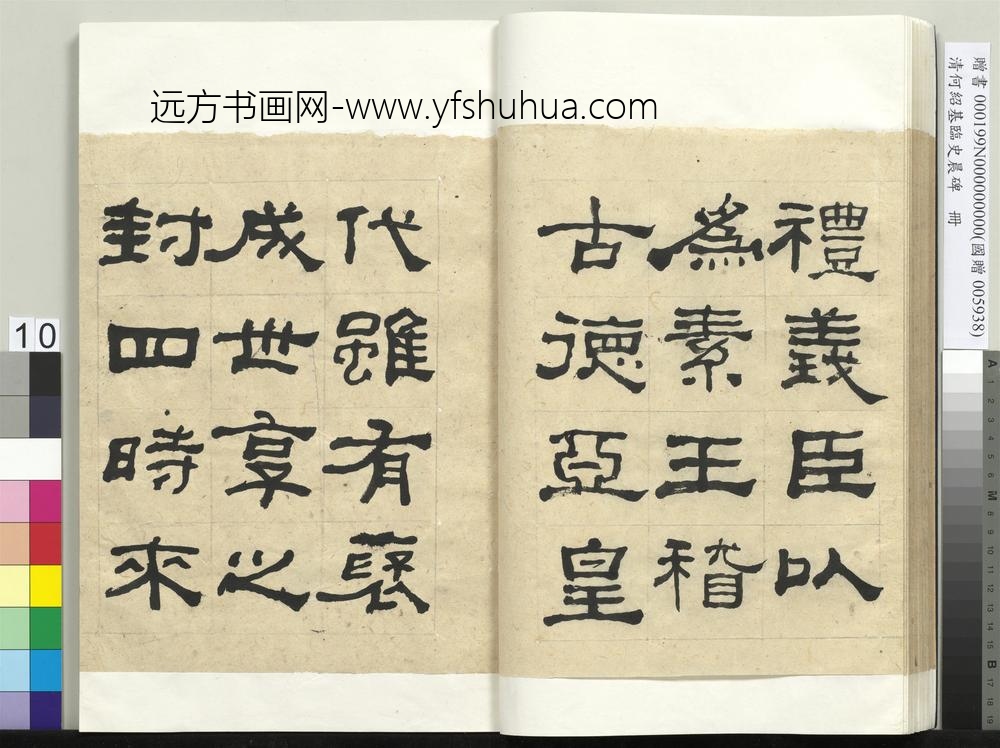 远方书画网-www.yfshuhua.com
禮義臣以
為素王稽
古德亞皇
代雖有褒
成世享之
封四時來
贈書 000199N000000000(國贈 005938)
清何紹基臨史晨碑 冊
10
A 1 2 3 4 5 6 M 8 9 10 11 12 13 14 15 B 17 18 19